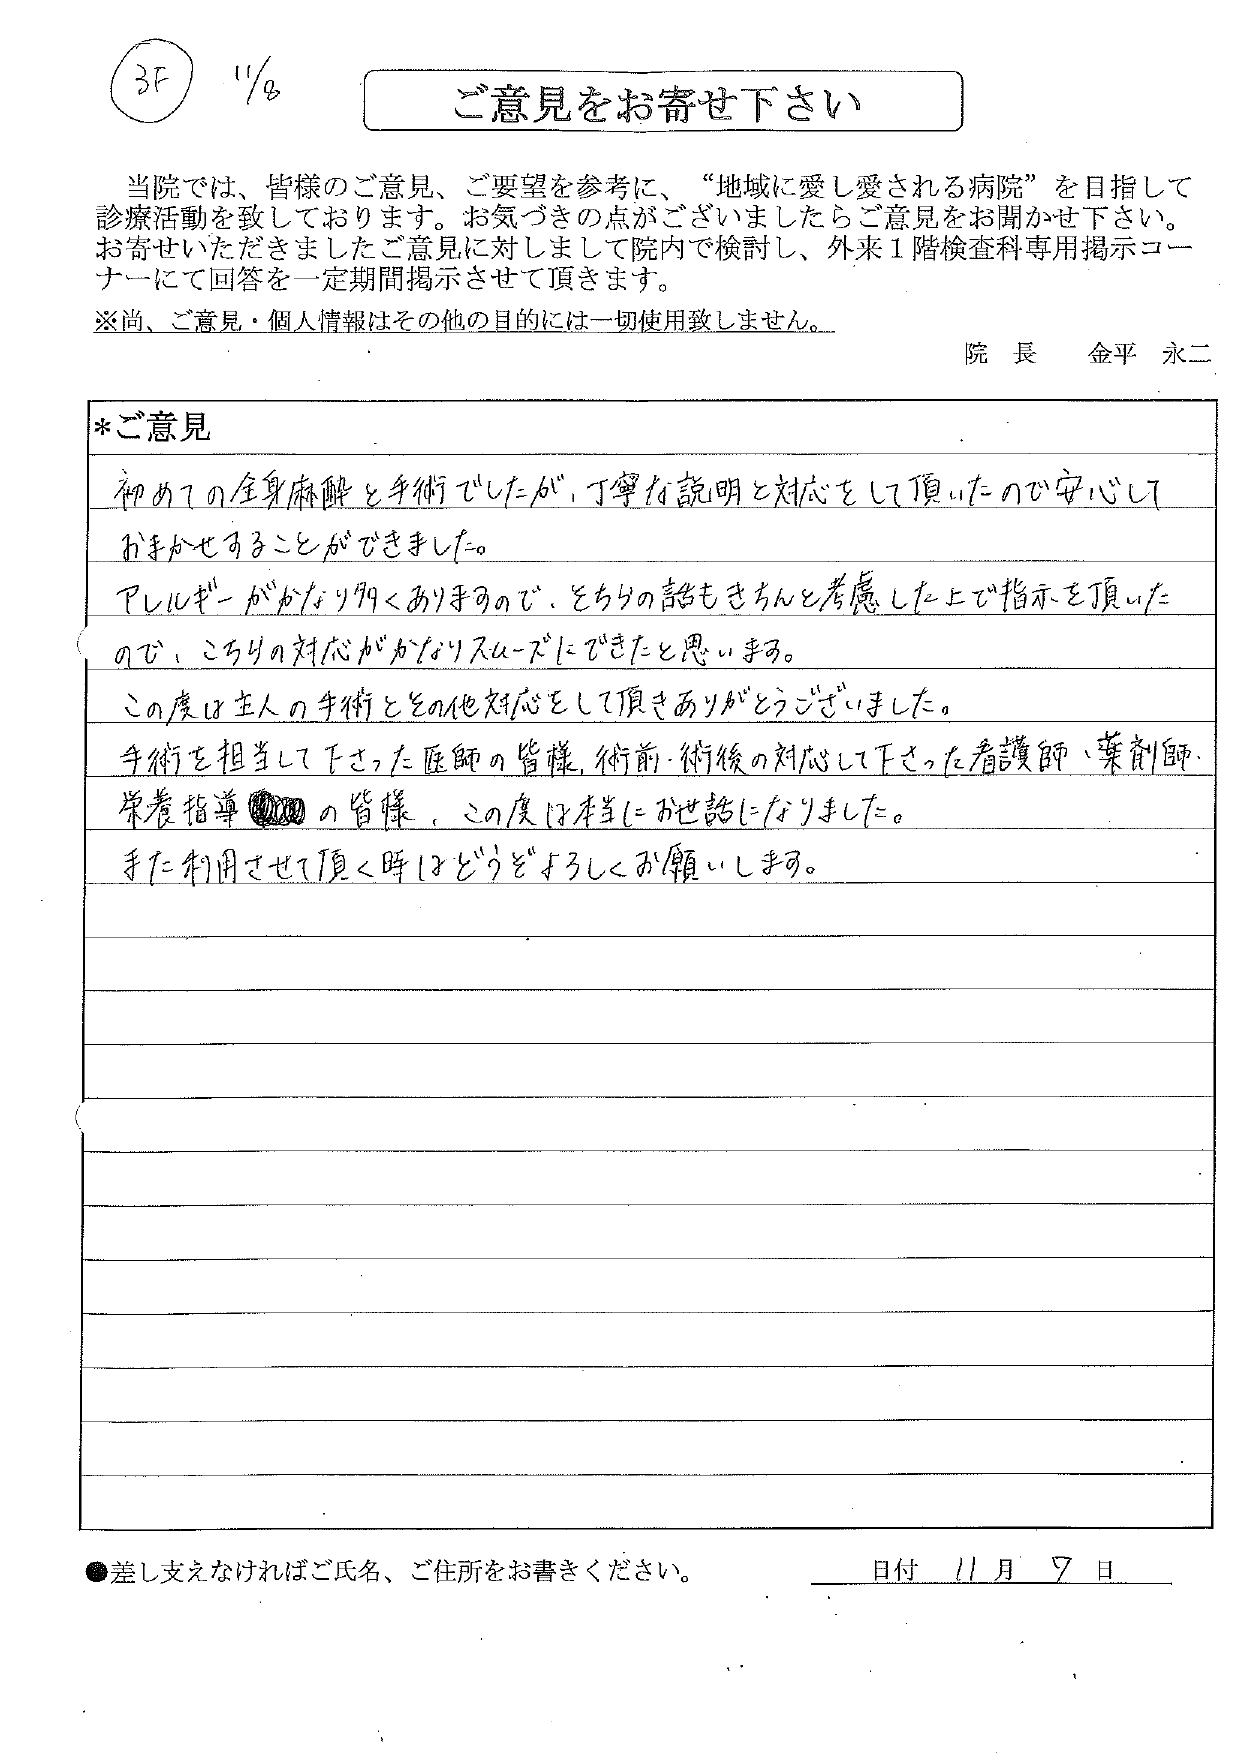 3F 11/8
ご意見をお寄せ下さい
当院では、皆様のご意見、ご要望を参考に、“地域に愛し愛される病院”を目指して
診療活動を致しております。お気づきの点がございましたらご意見をお聞かせ下さい。
お寄せいただきましたご意見に対しまして院内で検討し、外来１階検査科専用掲示コー
ナーにて回答を一定期間掲示させて頂きます。
※尚、ご意見・個人情報はその他の目的には一切使用致しません。
院 長 金平 永二
*ご意見
初めての全身麻酔と手術でしたが、丁寧な説明と対応をして頂いたので安心して
おまかせすることができました。
アレルギーがかなり多くありますので、そちらの話もきちんと考慮した上で指示を頂いた
ので、こちらの対応がかなりスムーズにできたと思います。
この度は主人の手術とその他対応をして頂きありがとうございました。
手術を担当して下さった医師の皆様、術前・術後の対応して下さった看護師、薬剤師・
栄養指導の皆様、この度は本当にお世話になりました。
また利用させて頂く時はどうぞよろしくお願いします。
●差し支えなければご氏名、ご住所をお書きください。 日付 11月 7 日